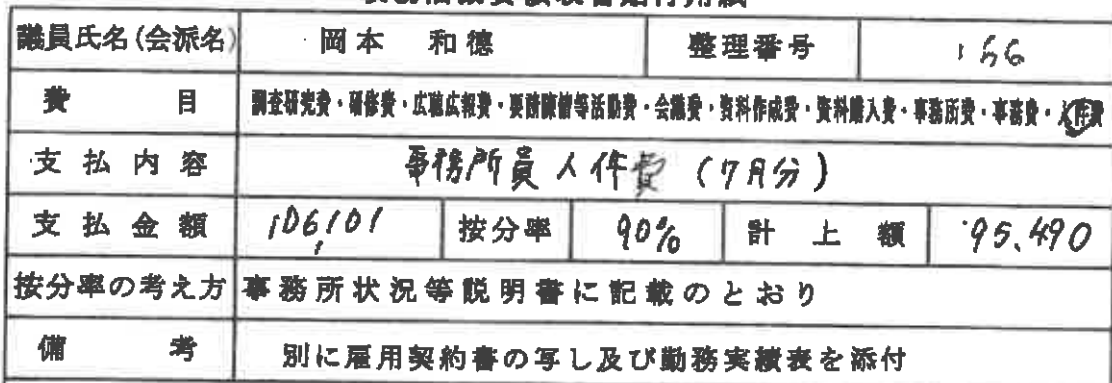 議員氏名(会派名) 岡本 和徳 整理番号 156
費目 調査研究費・研修費・広聴広報費・要請陳情等活動費・会議費・資料作成費・資料購入費・事務所費・事務費・人件費
支払内容 事務所員人件費 (7月分)
支払金額 106,101 按分率 90% 計上額 95,490
按分率の考え方 事務所状況等説明書に記載のとおり
備考 別に雇用契約書の写し及び勤務実績表を添付